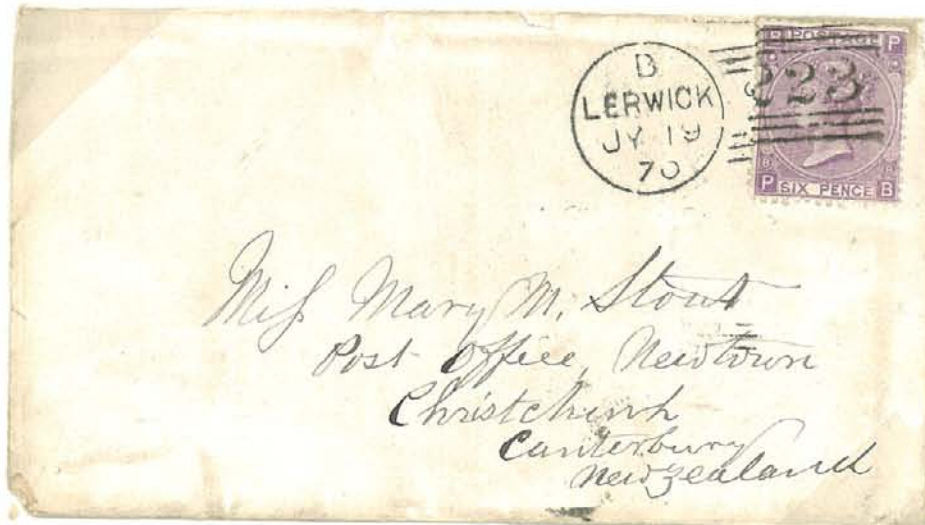 B
LERWICK
JY 19
70
B POSTAGE P
223
P SIX PENCE B
Miss Mary M. Stout
Post Office, Newtown
Christchurch
Canterbury
New Zealand